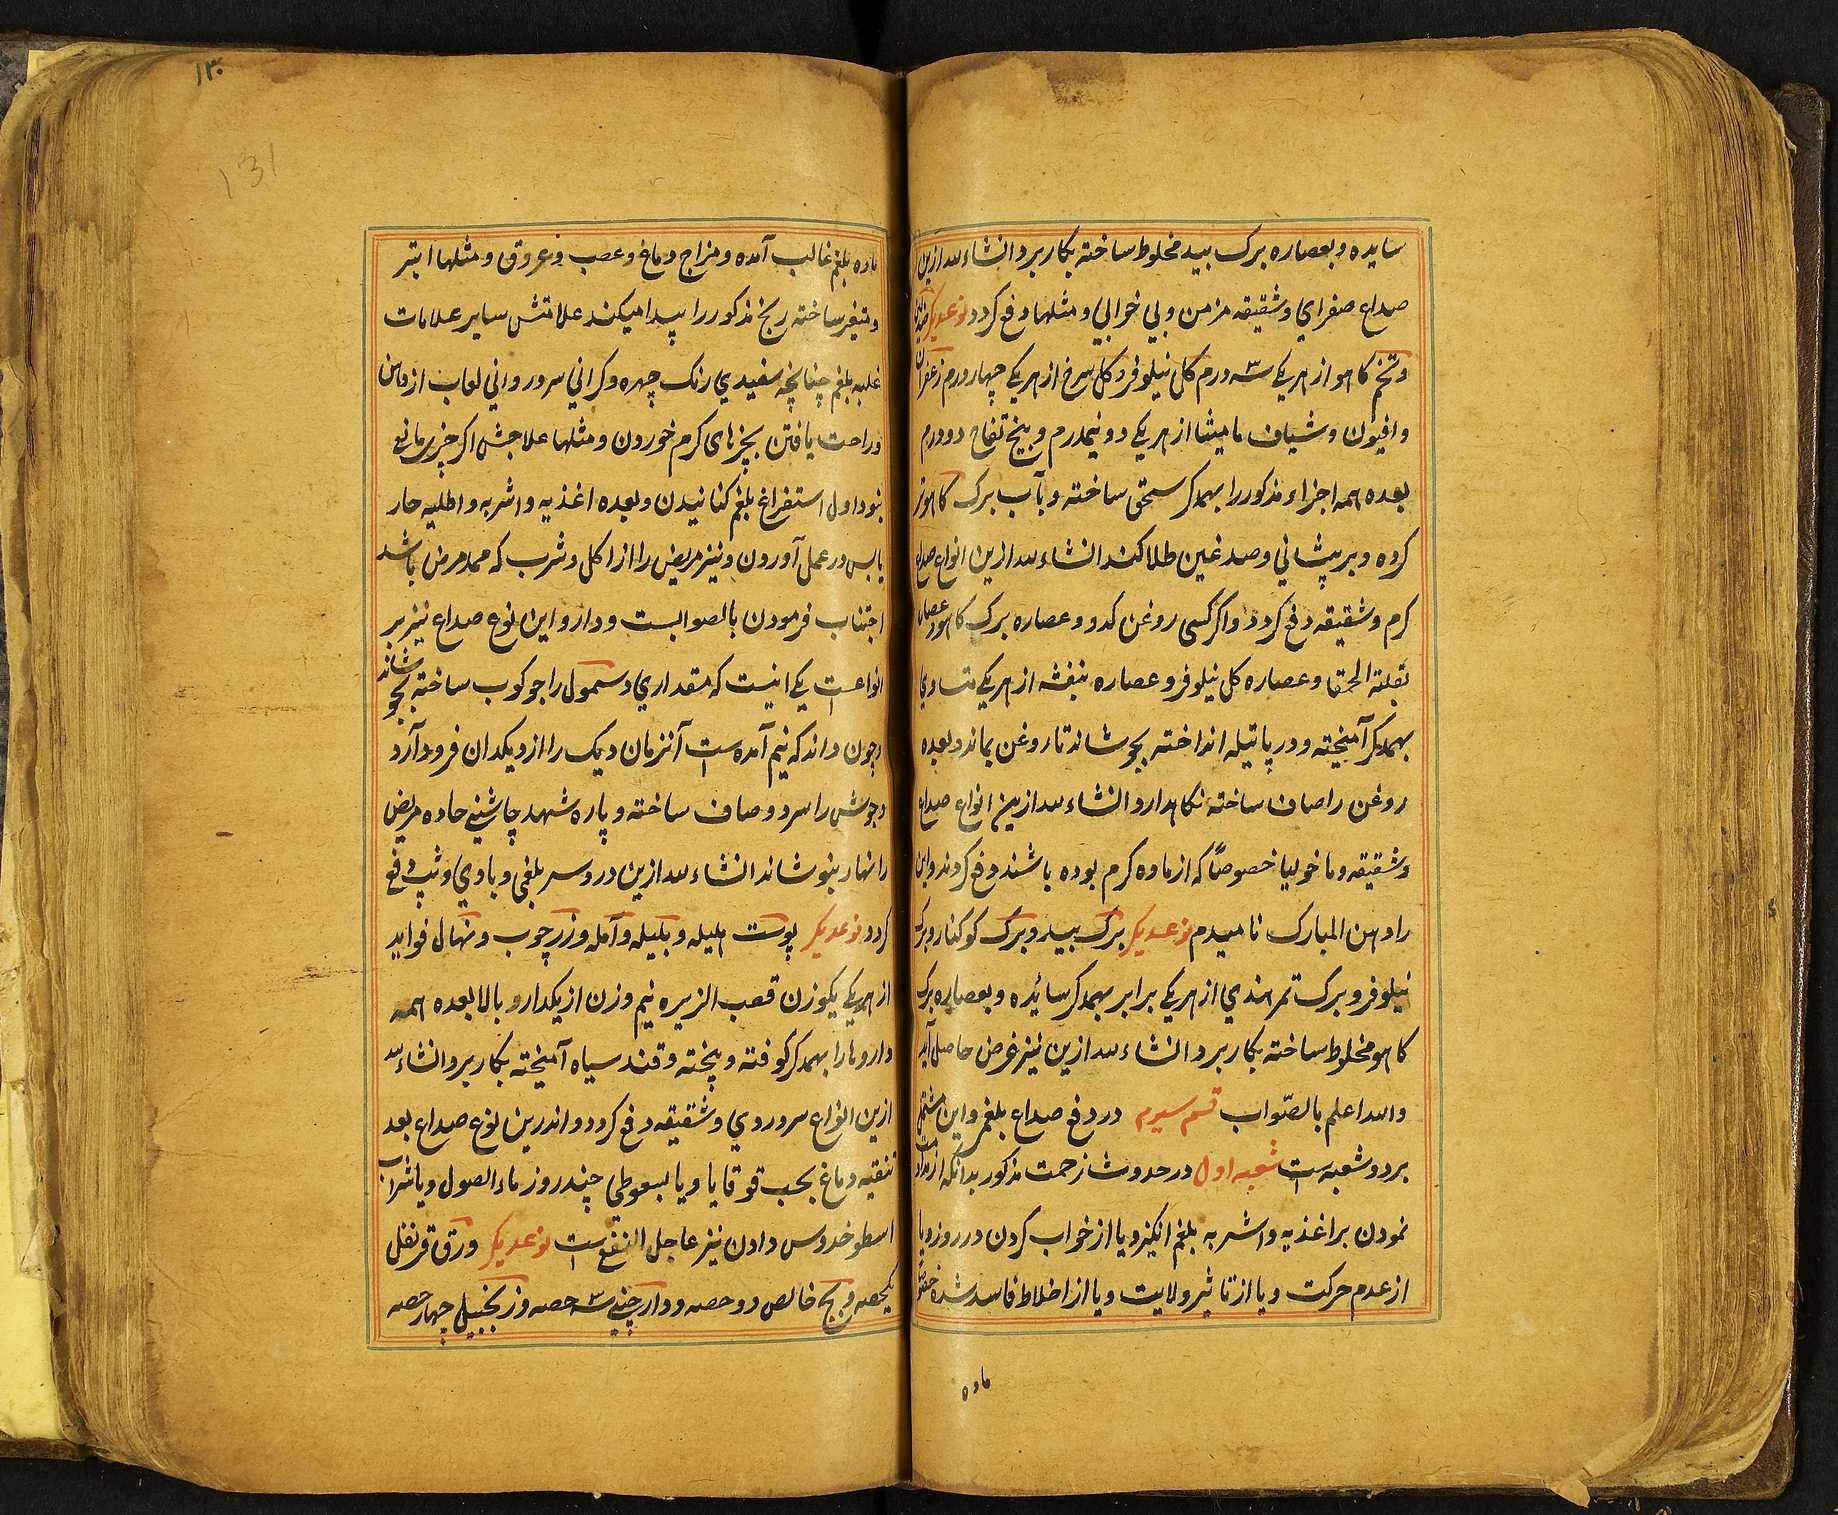 سایده و بعصاره برک بید مخلوط ساخته بکار برد انشاءالله ازین
صداع صفرای و شقیقه مزمن و بی خوابی و مثلها دفع کردد نوعدیکر
و تخم کاهو از هر یکی سه درم کل نیلوفر و کل سرخ از هر یکی چهار درم زعفران
و افیون و شیاف مامیثا از هر یکی دو نیمدرم و بیخ تفاح دو درم
بعده همه اجزاء مذکور را بهمدکر سحق ساخته و بآب برک کاهو تر
کرده و بر پیشانی و صدغین طلا کنند انشاءالله ازین انواع صداع
کرم و شقیقه دفع کردد و اکر کسی روغن کدو و عصاره برک کاهو و عصاره
بقلة الحمقا و عصاره کل نیلوفر و عصاره بنفشه از هر یکی متساوی
بهمدکر آمیخته و در پاتیله انداخته بجوشاند تا روغن بماند و بعده
روغن را صاف ساخته نکاهدارد انشاءالله ازین انواع صداع
و شقیقه و ماخولیا خصوصاً که از ماده کرم بوده باشند دفع کردند و این
را دهن المبارک نامیدم نوعدیکر برک بید و برک کوکنار و برک
نیلوفر و برک تمر هندی از هر یکی برابر بهمدکر سائیده و بعصاره برک
کاهو مخلوط ساخته بکار برد انشاءالله ازین نیز غرض حاصل آید
والله اعلم بالصّواب قسم سیوم در دفع صداع بلغمی و این مشتمل
بر دو شعبه است شعبه اول در حدوث زحمت مذکور بدانکه از مداومت
نمودن بر اغذیه و اشربه بلغم انکیز و یا از خواب کردن در روز و یا
از عدم حرکت و یا از تاثیر ولایت و یا از اخلاط فاسد شده خصوصاً
ماده
۱۳۰
131
ماده بلغم غالب آمده و مزاج دماغ و عصب و عروق و مثلها ابتر
و متغیر ساخته رنج مذکور را پیدا میکند علامتش سایر علامات
غلبه بلغم چنانچه سفیدی رنک چهره و کرانی سر و روانی لعاب از دهن
و راحت یافتن بچیزهای کرم خوردن و مثلها علاجش اکر چیزی مانع
نبود اول استفراغ بلغم کنانیدن و بعده اغذیه و اشربه و اطلیه حار
یابس در عمل آوردن و نیز مریض را از اکل و شرب که ممد مرض باشد
اجتناب فرمودن بالصوابست و دارو این نوع صداع نیز بر
انواعست یکی اینست که مقداری دسمول را جوکوب ساخته بجوشاند
و چون داند که نیم آمده است آنزمان دیک را از دیکدان فرود آرد
و جوش را سرد و صاف ساخته و پاره شهد چاشنی داده مریض
را نهار بنوشاند انشاءالله ازین درد سر بلغمی و بادی و تپ دفع
کردد نوعدیکر پوست هلیله و بلیله و آمله و زرچوب و نهال فواید
از هر یکی یکوزن قصب الزیره نیم وزن از یکدارو بالا بعده همه
داروها را بهمدکر کوفته و پخته و قند سیاه آمیخته بکار برد انشاءالله
ازین انواع سر وردی و شقیقه دفع کردد و اندرین نوع صداع بعد
تنقیه دماغ بحب قوقایا و یا بسعوطی چند روز ماء الصول و یا شراب
اسطوخدوس دادن نیز عاجل النفع است نوعدیکر ورق قرنفل
یکحصه و بج خالص دو حصه و دارچینی سه حصه و زنجبیل چهار حصه